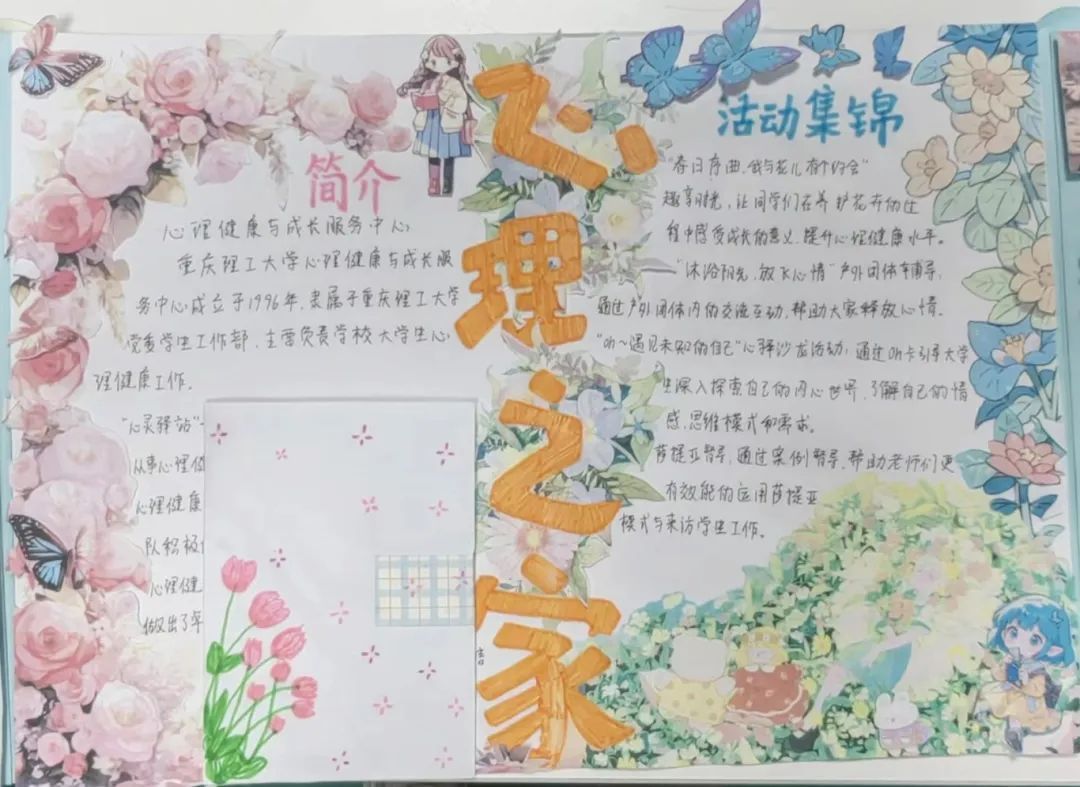 简介
心理健康与成长服务中心
重庆理工大学心理健康与成长服
务中心成立于1996年,隶属于重庆理工大学
党委学生工作部,主要负责学校大学生心
理健康工作。
"心灵驿站"
从事心理
心理健康
队积极
心理健
做出了
心理之家
活动集锦
"春日序曲,我与花儿有个约会"
趣享时光,让同学们在养护花卉的过
程中感受成长的意义,提升心理健康水平。
"沐浴阳光,放飞心情"户外团体辅导,
通过户外团体内的交流互动,帮助大家释放心情。
"oh~遇见未知的自己"心驿沙龙活动,通过oh卡引导大学
生深入探索自己的内心世界,了解自己的情
感、思维模式和需求。
萨提亚督导,通过案例督导,帮助老师们更
有效能的运用萨提亚
模式与来访学生工作。